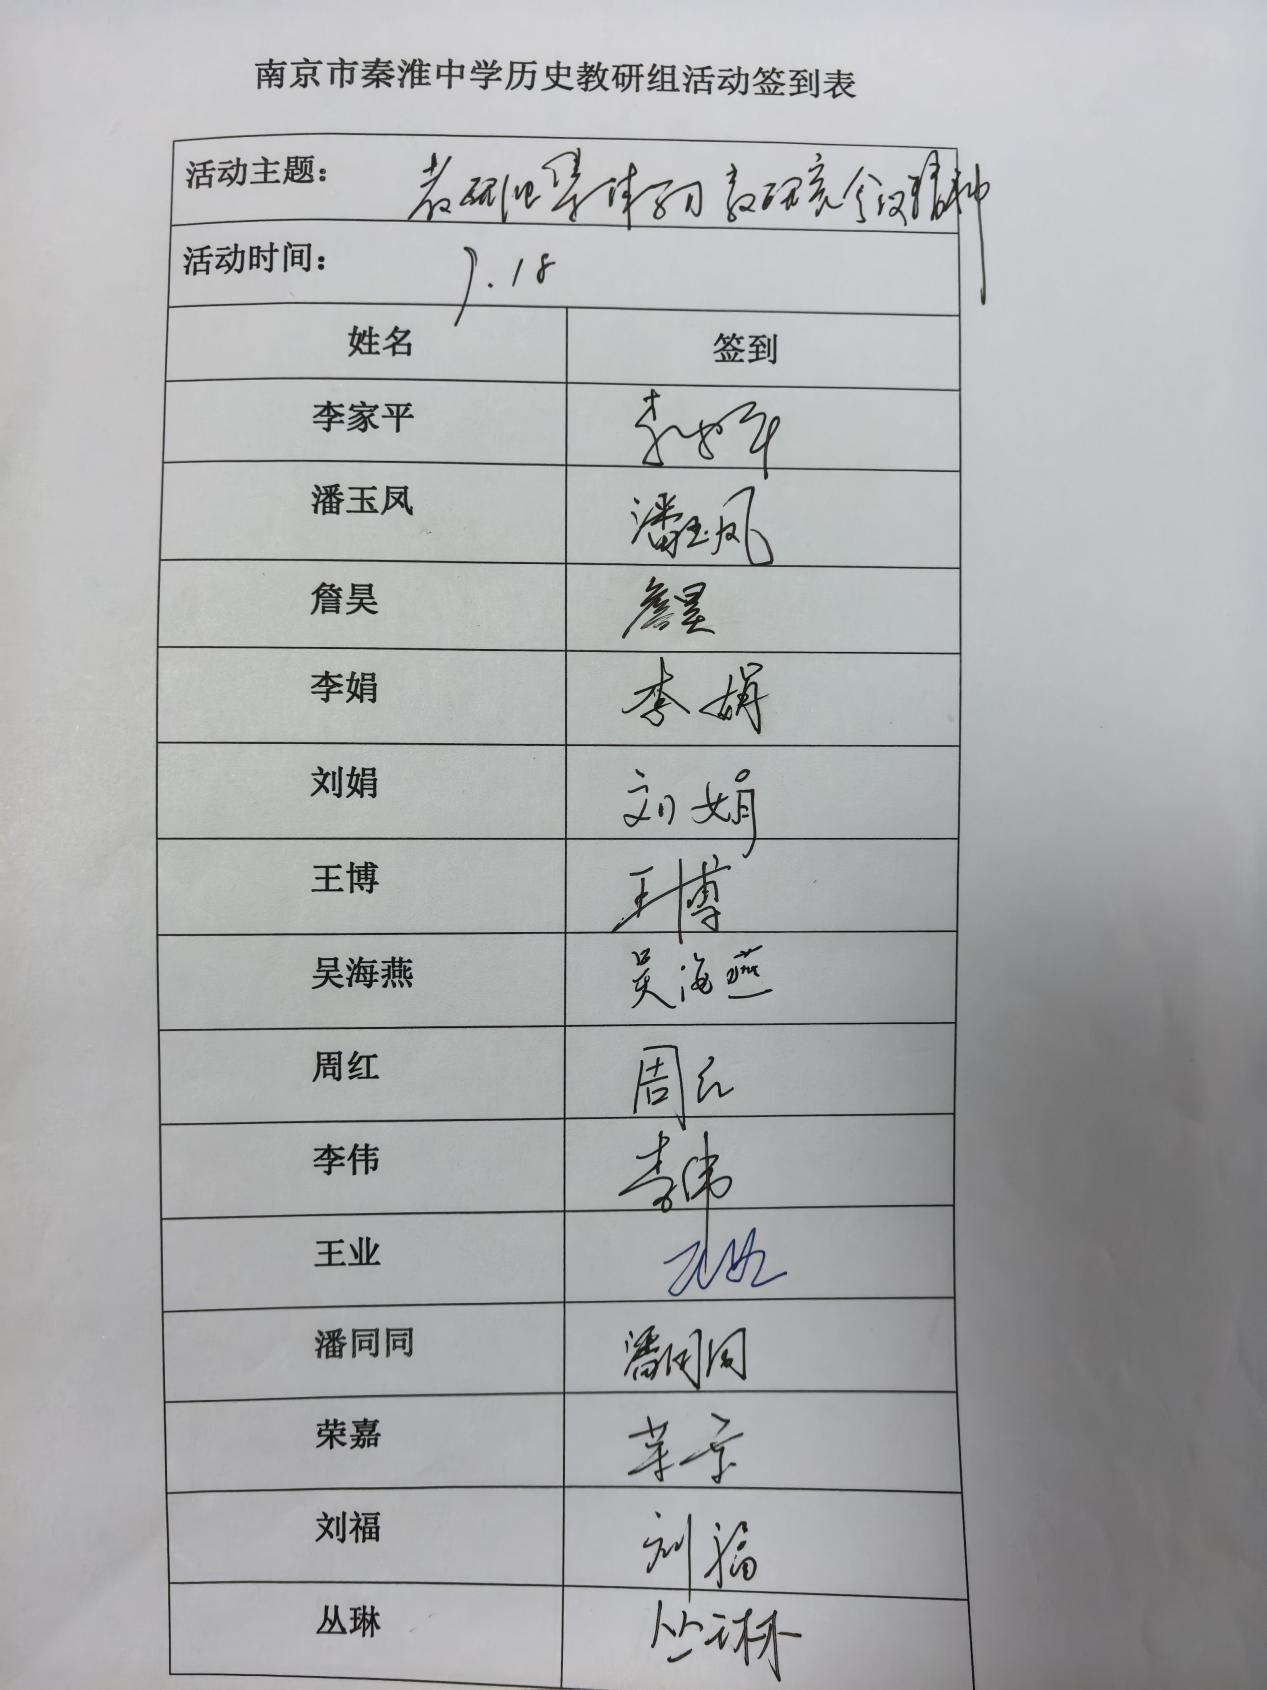 南京市秦淮中学历史教研组活动签到表
活动主题： 教研组集体学习教研室会议精神
活动时间： 9.18
姓名 签到
李家平 李家平
潘玉凤 潘玉凤
詹昊 詹昊
李娟 李娟
刘娟 刘娟
王博 王博
吴海燕 吴海燕
周红 周红
李伟 李伟
王业 王业
潘同同 潘同同
荣嘉 荣嘉
刘福 刘福
丛琳 丛琳